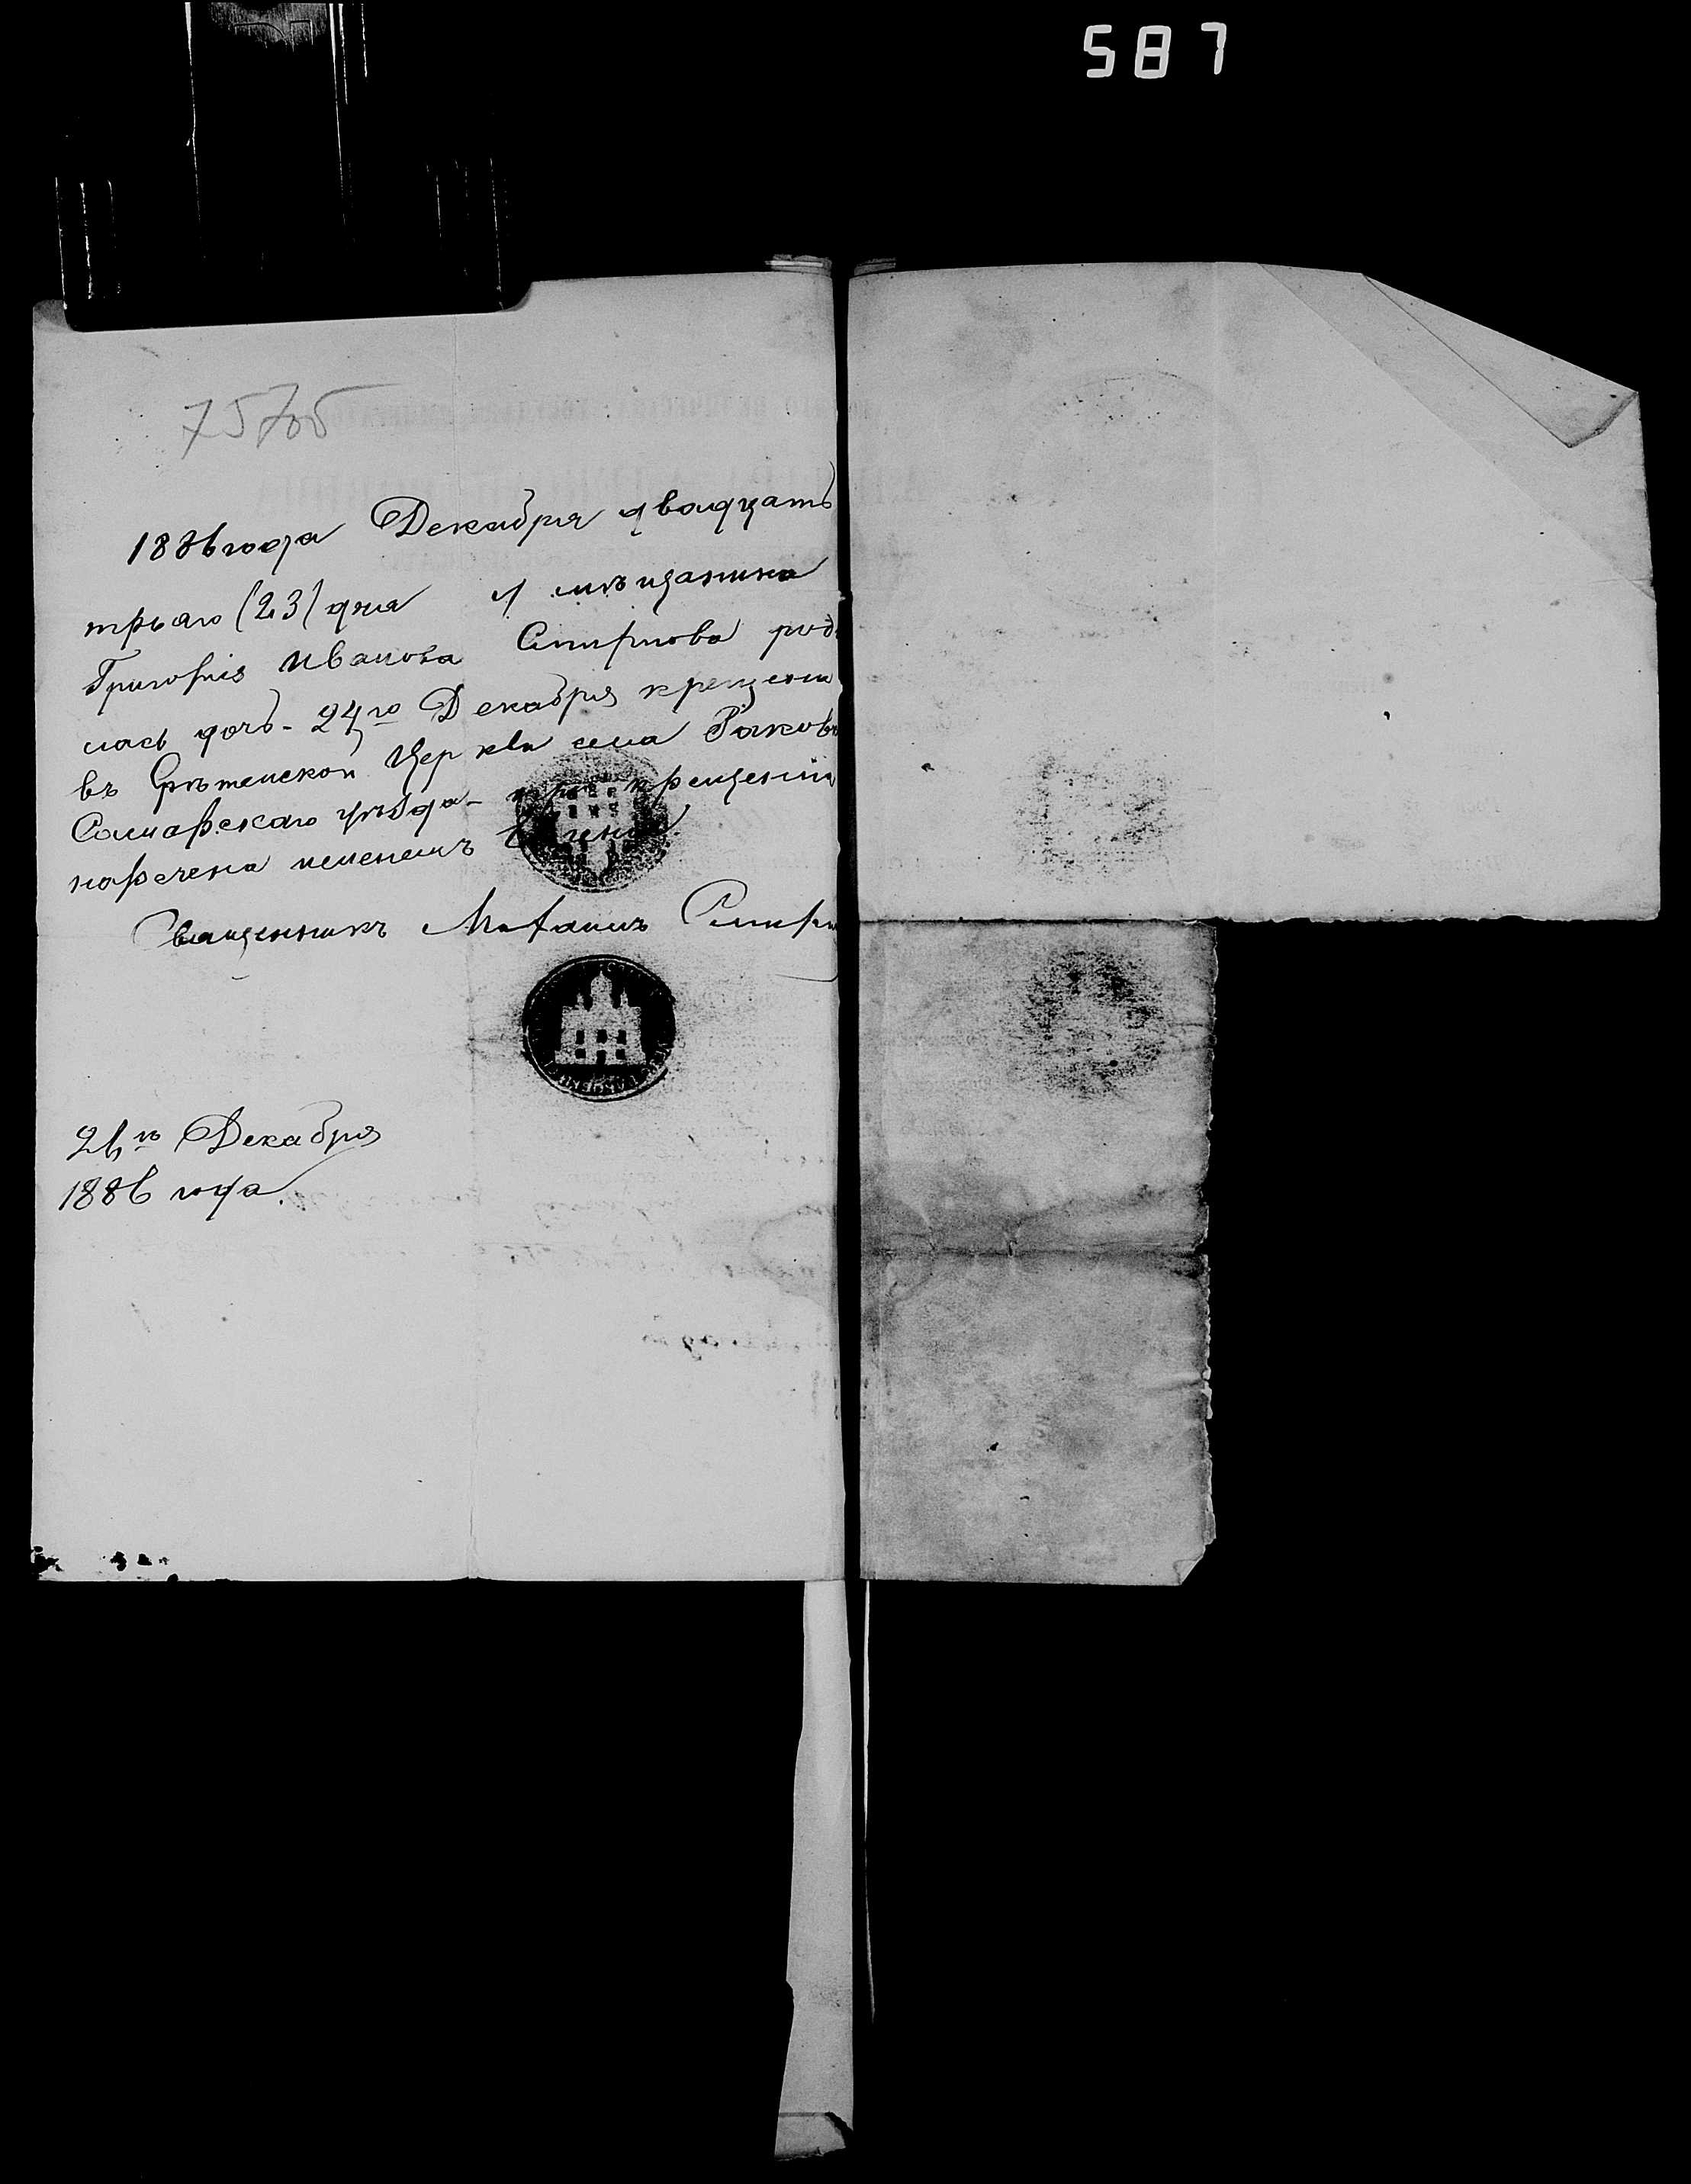 587
1886 года Декабря двадцать
трьяго (23) дня у мѣщанина
Григорія Иванова Смирнова роди
лась дочь - 24го Декабря крещена
въ Срѣтенской Церкви села Раковк
Самарскаго уѣзда - при крещеніи
наречена именемъ Евгенія.
Священникъ Смирн
26го Декабря
1886 года.